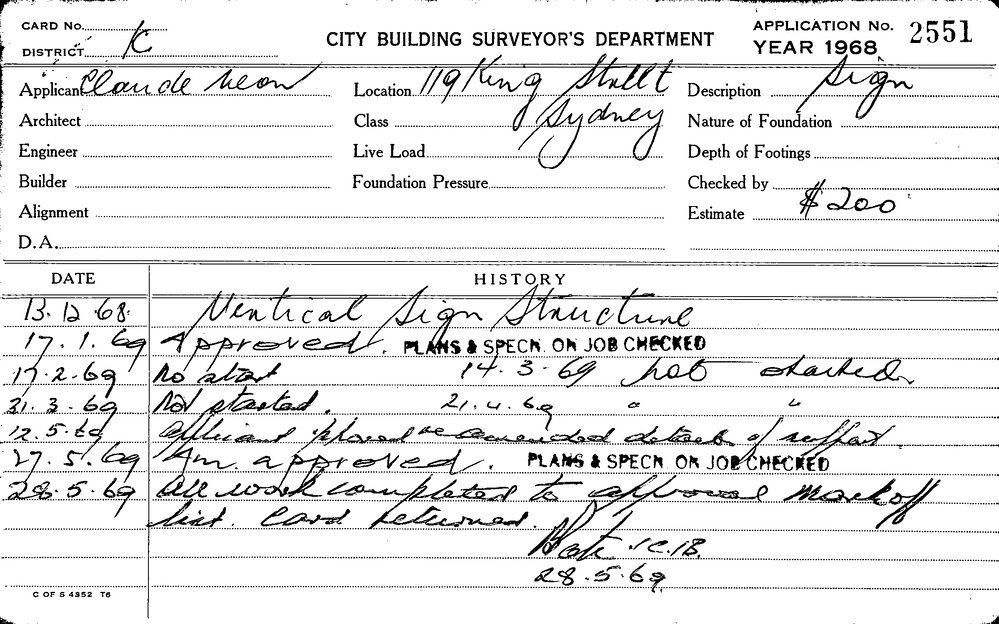 CARD No.
DISTRICT K
CITY BUILDING SURVEYOR'S DEPARTMENT
APPLICATION No. 2551
YEAR 1968
Applicant Claude Neon
Location 119 King Street
Sydney
Description Sign
Architect
Class
Nature of Foundation
Engineer
Live Load
Depth of Footings
Builder
Foundation Pressure
Checked by
Alignment
Estimate $200
D.A.
DATE HISTORY
13.12.68. Vertical Sign Structure
17.1.69 Approved. PLANS & SPECN. ON JOB CHECKED
17.2.69 No start 14.3.69 not started
31.3.69 Not started. 21.4.69 " "
12.5.69 applicant phoned re amended details of support.
27.5.69 Am. approved. PLANS & SPECN. ON JOB CHECKED
28.5.69 All work completed to approval mark off
list. Card returned.
28.5.69
C OF S 4352 T6